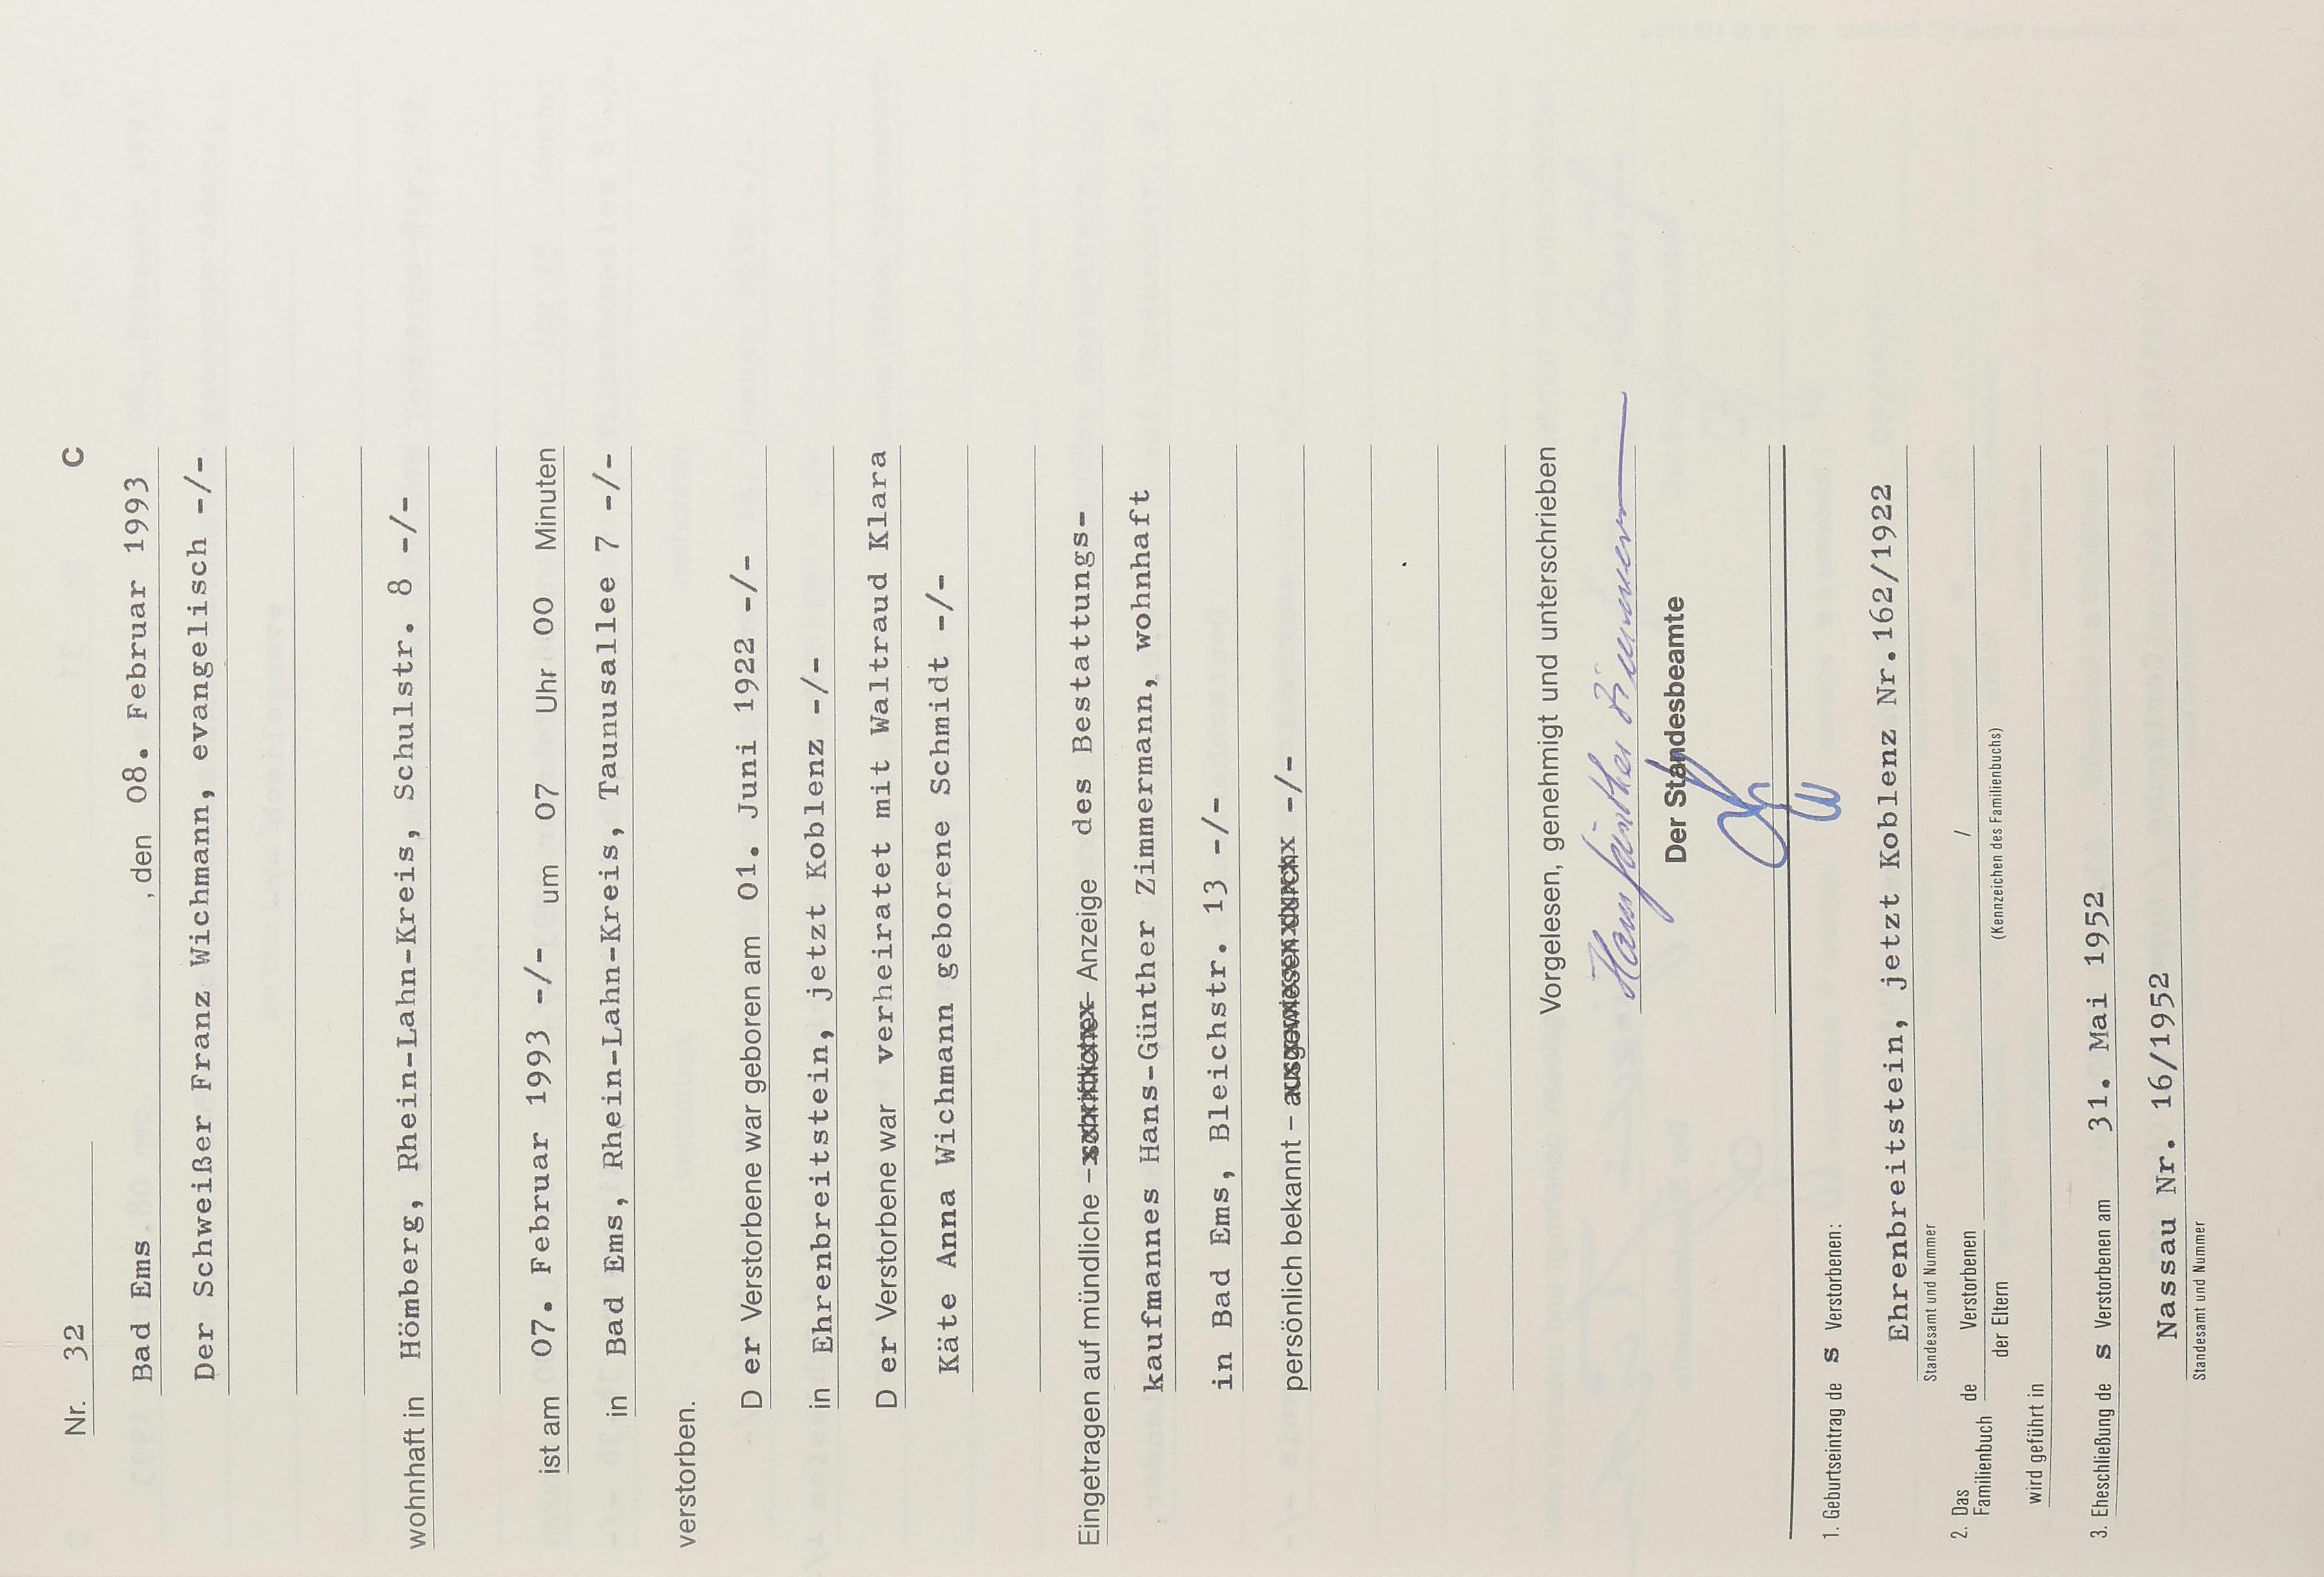 Nr. 32 C
Bad Ems , den 08. Februar 1993
Der Schweißer Franz Wichmann, evangelisch -/-
wohnhaft in Hömberg, Rhein-Lahn-Kreis, Schulstr. 8 -/-
ist am 07. Februar 1993 -/- um 07 Uhr 00 Minuten
in Bad Ems, Rhein-Lahn-Kreis, Taunusallee 7 -/-
verstorben.
D er Verstorbene war geboren am 01. Juni 1922 -/-
in Ehrenbreitstein, jetzt Koblenz -/-
D er Verstorbene war verheiratet mit Waltraud Klara
Käte Anna Wichmann geborene Schmidt -/-
Eingetragen auf mündliche – schriftliche – Anzeige des Bestattungs-
kaufmannes Hans-Günther Zimmermann, wohnhaft
in Bad Ems, Bleichstr. 13 -/-
persönlich bekannt – ausgewiesen durch -/-
Vorgelesen, genehmigt und unterschrieben
Hans Günther Zimmermann
Der Standesbeamte
1. Geburtseintrag de s Verstorbenen:
Ehrenbreitstein, jetzt Koblenz Nr.162/1922
Standesamt und Nummer
2. Das Familienbuch de Verstorbenen /
der Eltern (Kennzeichen des Familienbuchs)
wird geführt in
3. Eheschließung de s Verstorbenen am 31. Mai 1952
Nassau Nr. 16/1952
Standesamt und Nummer